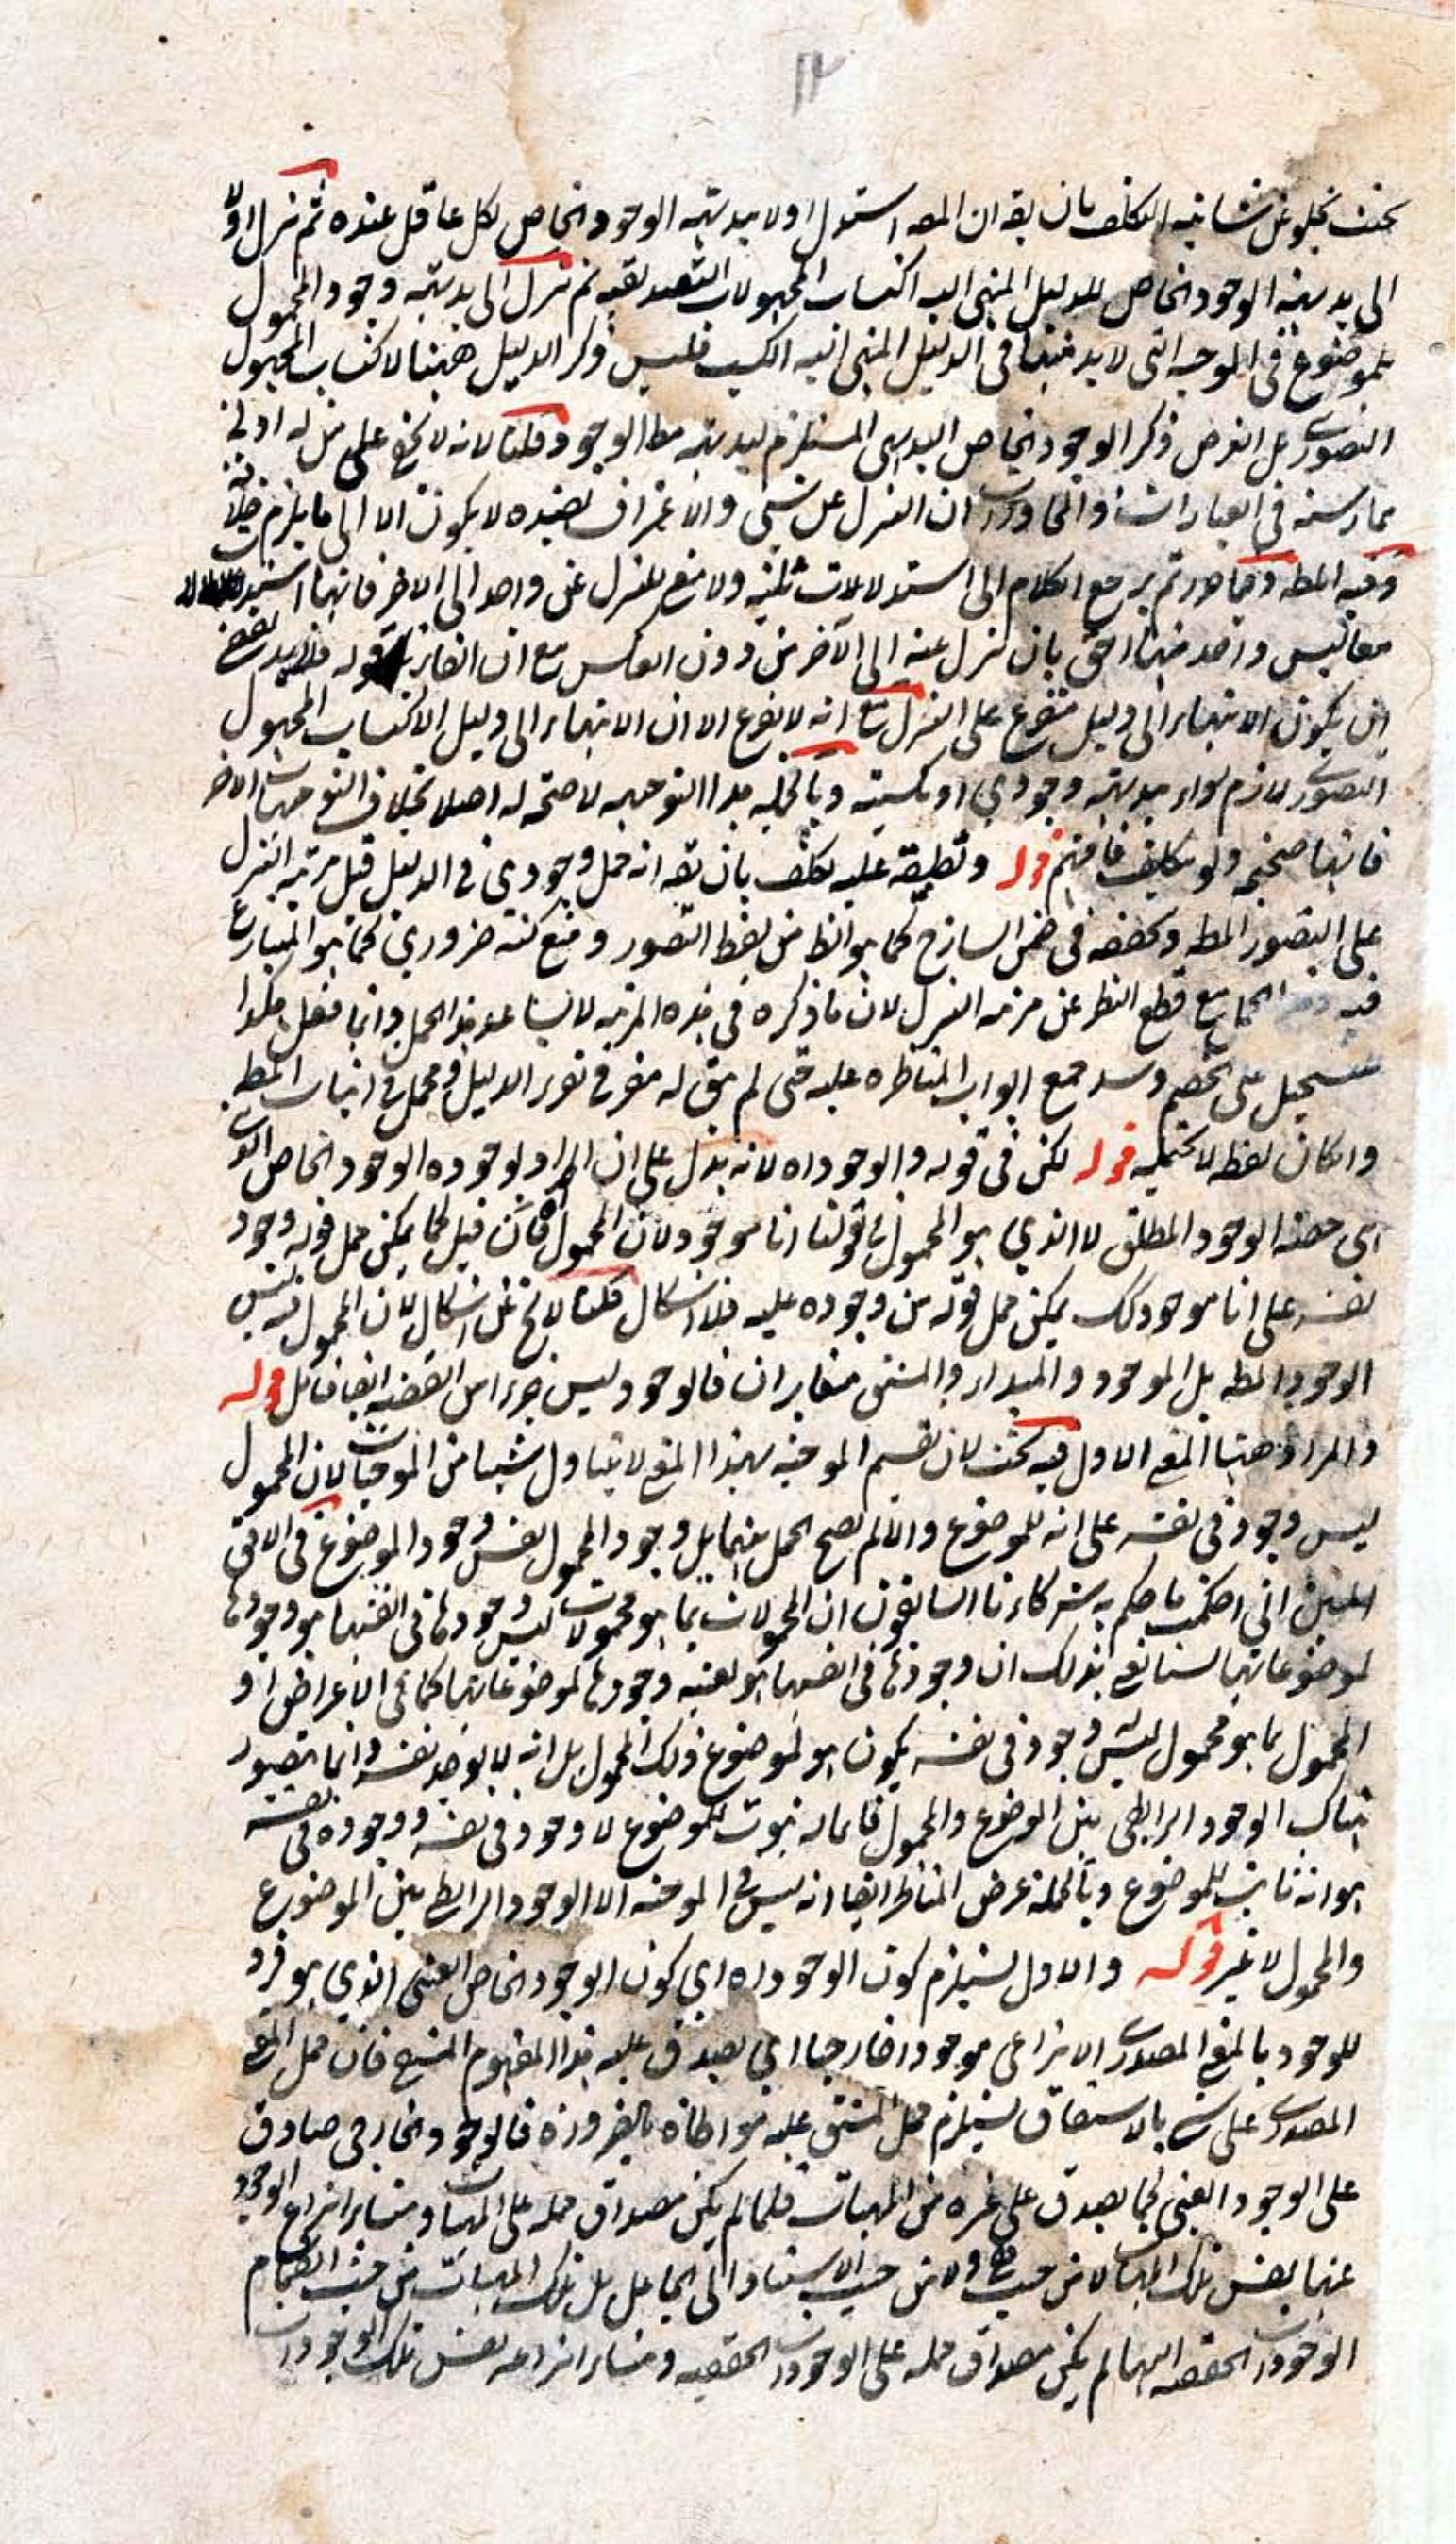 ١٢
بحيث يخلو عن شائبة التكلف بان يقه ان المصه استدل اولا ببديهية الوجود الخاص لكل عاقل عنده ثم تنزل اولا
الى بديهية الوجود الخاص للدليل المنتهى اليه اكتساب المجهولات التصديقية ثم تنزل الى بديهية وجود المحمول
للموضوع في الموجبة التي لا بد منها في الدليل المنتهى اليه الكسب فليس ذكر الدليل ههنا لاكتساب المجهول
التصوري بل الغرض ذكر الوجود الخاص البديهي المستلزم لبديهية مطه الوجود قلنا لانه لا يخفى على من له ادنى
ممارسة في العبارات والمحاورات ان التنزل عن شيء والاعتراف بضده لا يكون الا الى ما يلزم خلافه
وفيه المطه وفيما صورتم يرجع الكلام الى استدلالات ثلثة ولا معنى للتنزل عن واحد الى الاخر فانها
معا ليس واحد منها احق بان تنزل عنه الى الآخر من دون العكس مع ان الفاء في قوله فلا بد
ان يكون الانتهاء الى دليل متفرع على التنزل مع انه لا تفرع الا ان الانتهاء الى دليل الاكتساب المجهول
التصوري لازم سواء بديهية وجودي او كسبيته وبالجملة هذا التوجيه لا صحة له اصلا بخلاف التوجيهات الاخر
فانها صحيحة ولو بتكلف فافهم قوله وتطبيقه عليه تكلف بان يقه انه حمل وجودي في الدليل قبل مرتبة التنزل
على التصور المطه وتحققه في ضمن الساذج كما هو الظ من لفظ التصور ومنع كنته ضروري كما هو المتنازع
فيه مع قطع النظر عن مرتبة التنزل لان ما ذكره في هذه المرتبة لا يساعد هذا الحمل وانما فعل هكذا
تسجيل على الخصم وسد جميع ابواب المناظرة عليه حتى لم يبق له مفر في تقرير الدليل ومحمل في اثبات المطه
وان كان لفظه لا يحتمله قوله لكن في قوله والوجود اه لانه يدل على ان المراد بوجوده الوجود الخاص الذي
اى حصته الوجود المطلق لا الذي هو المحمول في قولنا انا موجود لان المحمول فان قيل كما يمكن حمل قوله وجود
نفسه على انا موجود كك يمكن حمل قوله من وجوده عليه فلا اشكال قلنا لا يخ عن اشكال لان المحمول فيه ليس
الوجود المطه بل الموجود والمبدأ والمشتق متغايران فالوجود ليس جزءا من القضية ايضا فتامل قوله
والمراد ههنا المعنى الاول فيه بحث لان تقسيم الموجبة بهذا المعنى لا يتناول شيئا من الموجبات لان المحمول
ليس وجوده في نفسه على انه للموضوع والا لم يصح الحمل بينهما بل وجود المحمول نفس وجود الموضوع في الافق
المبين انى احكمت ما حكم به شركاءنا السابقون ان المحمولات بما هو محمولات ليس وجودها في انفسها هو وجودها
لموضوعاتها لست اعني بذلك ان وجودها في انفسها هو بعينه وجودها لموضوعاتها كما في الاعراض او
المحمول بما هو محمول ليس وجوده في نفسه يكون هو لموضوع ذلك المحمول بل انه لا يوجد نفسه وانما يتصور
هناك الوجود الرابطي بين الموضوع والمحمول فانما له ثبوت للموضوع لا وجود في نفسه ووجوده في نفسه
هو انه ثابت للموضوع وبالجملة غرض المناظر ايضا انه ليس في الموجبة الا الوجود الرابط بين الموضوع
والمحمول لا غير قوله والاول يستلزم كون الوجود اه اي كون الوجود الخاص العيني الذي هو فرد
للوجود بالمعنى المصدري الانتزاعي موجودا خارجيا اي يصدق عليه هذا المفهوم المنتزع فان حمل المعنى
المصدري على شيء بالاشتقاق يستلزم حمل المشتق عليه مواطاة بالضرورة فالوجود الخارجي صادق
على الوجود العيني كما يصدق على غيره من المهيات فلما لم يكن مصداق حمله على المهيات ومنشا انتزاع الوجود
عنها نفس تلك المهيات لا من حيث هي ولا من حيث الاستناد الى الجاعل بل تلك المهيات من حيث انضمام
الوجودات الحقيقية اليها لم يكن مصداق حمله على الوجودات الحقيقية ومنشا انتزاعه نفس تلك الوجودات